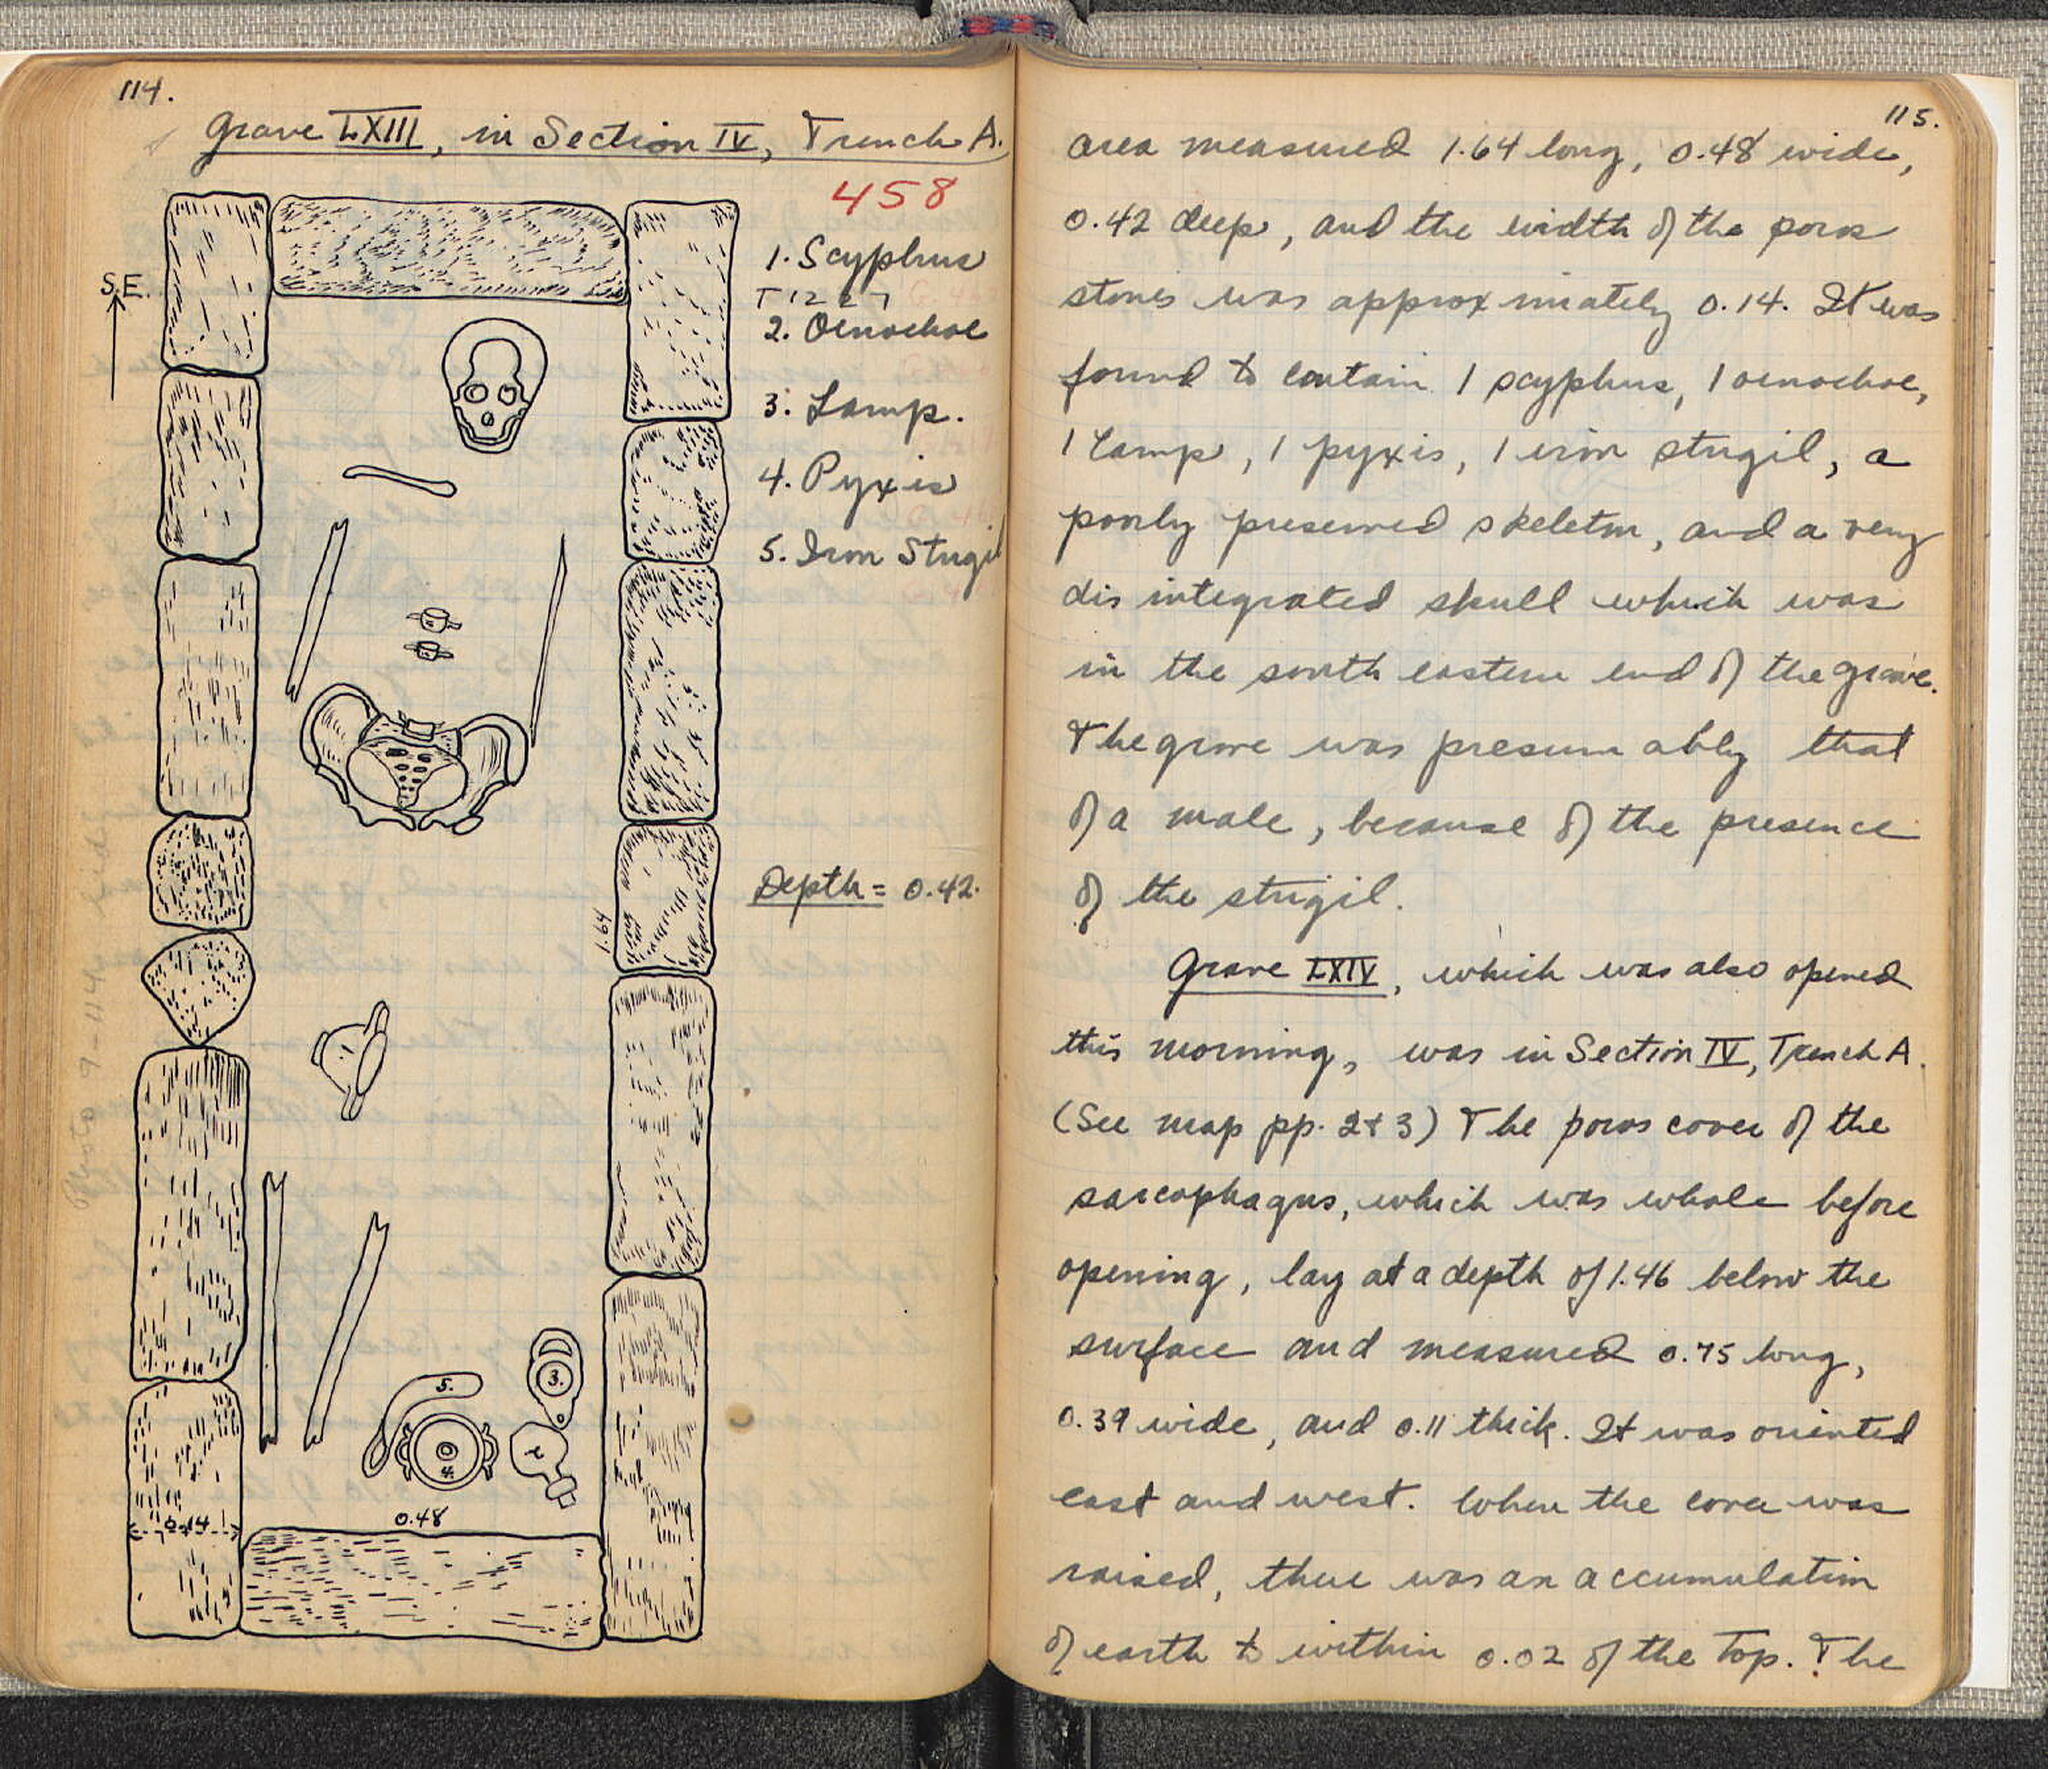 114.
Grave LXIII, in Section IV, Trench A.
458
S.E.
1. Scyphus
T 1227
2. Oenochoe
3. Lamp.
4. Pyxis
5. Iron Strigil
Depth = 0.42.
1.64
3.
5.
4.
2
0.48
0.14
Photo 9-114
115.
area measured 1.64 long, 0.48 wide,
0.42 deep, and the width of the poros
stones was approximately 0.14. It was
found to contain 1 scyphus, 1 oenochoe,
1 lamp, 1 pyxis, 1 iron strigil, a
poorly preserved skeleton, and a very
disintegrated skull which was
in the south eastern end of the grave.
The grave was presumably that
of a male, because of the presence
of the strigil.
Grave LXIV, which was also opened
this morning, was in Section IV, Trench A.
(See map pp. 2+3) The poros cover of the
sarcophagus, which was whole before
opening, lay at a depth of 1.46 below the
surface and measured 0.75 long,
0.39 wide, and 0.11 thick. It was oriented
east and west. When the cover was
raised, there was an accumulation
of earth to within 0.02 of the top. The